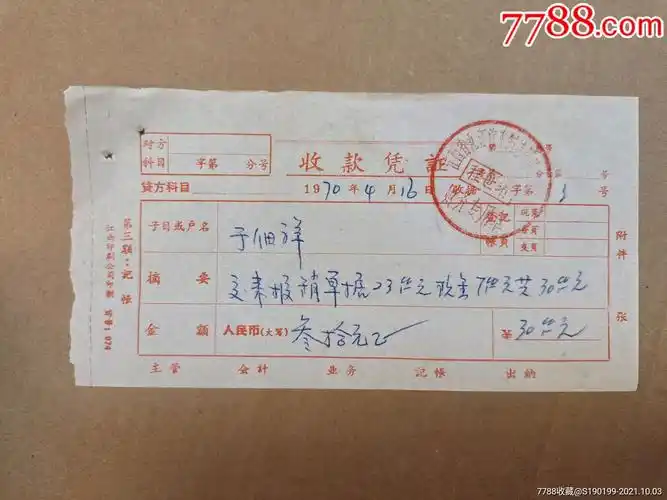 7788.com
对方
科目 字第 分号
收款凭证
贷方科目
1970年4月16日 收据 字第 3 号
子目或户名
于佃祥
登记
帐页
摘要
交来报销单据23元 现金7元 共30元
金额 人民币(大写) 叁拾元正
30元
附件 张
第三联:记帐
主管 会计 业务 记帐 出纳
7788收藏@S190199-2021.10.03